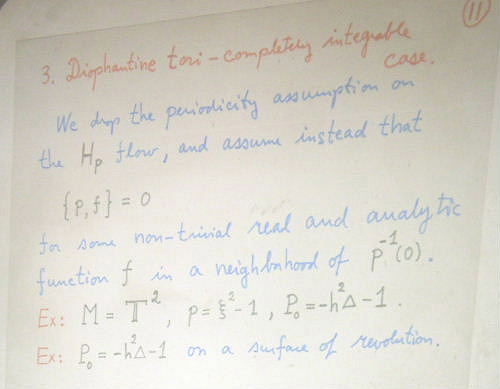 11
3. Diophantine tori - completely integrable
case.
We drop the periodicity assumption on
the Hp flow, and assume instead that
{p, f} = 0
for some non-trivial real and analytic
function f in a neighborhood of p⁻¹(0).
Ex: M = 𝕋², p = ξ² - 1, P₀ = -h²Δ - 1.
Ex: P₀ = -h²Δ - 1 on a surface of revolution.